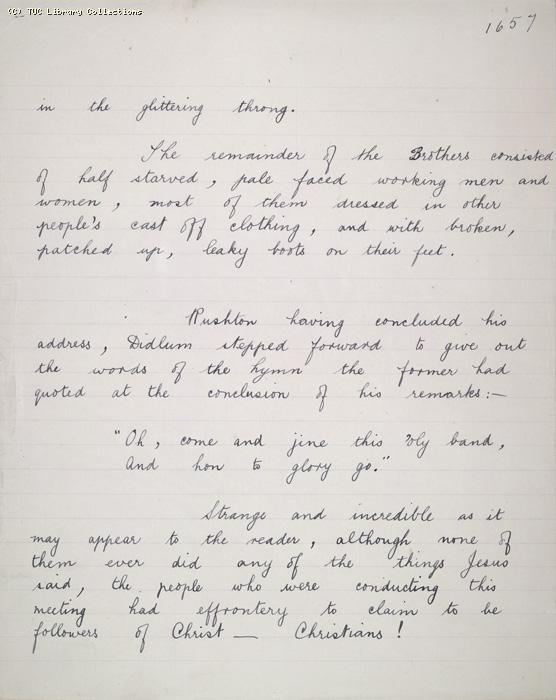 (C) TUC Library Collections
1657
in the glittering throng.
The remainder of the Brothers consisted
of half starved, pale faced working men and
women, most of them dressed in other
people's cast off clothing, and with broken,
patched up, leaky boots on their feet.
Rushton having concluded his
address, Didlum stepped forward to give out
the words of the hymn the former had
quoted at the conclusion of his remarks:—
"Oh, come and jine this 'oly band,
And hon to glory go."
Strange and incredible as it
may appear to the reader, although none of
them ever did any of the things Jesus
said, the people who were conducting this
meeting had effrontery to claim to be
followers of Christ — Christians!